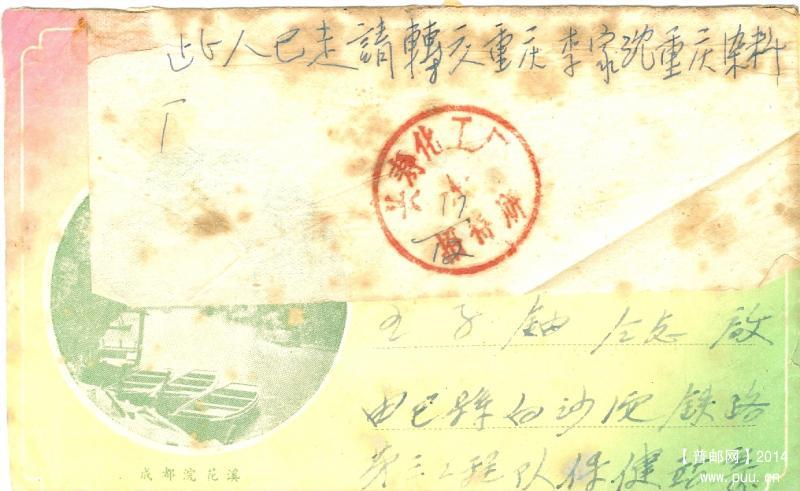 此人已走請轉交重庆李家沱重庆染料
厂
长寿化工厂
王子
同志 啟
由巴縣白沙沱铁路
第三工程队保健站
成都浣花溪
【普邮网】2014
www.puu.cn